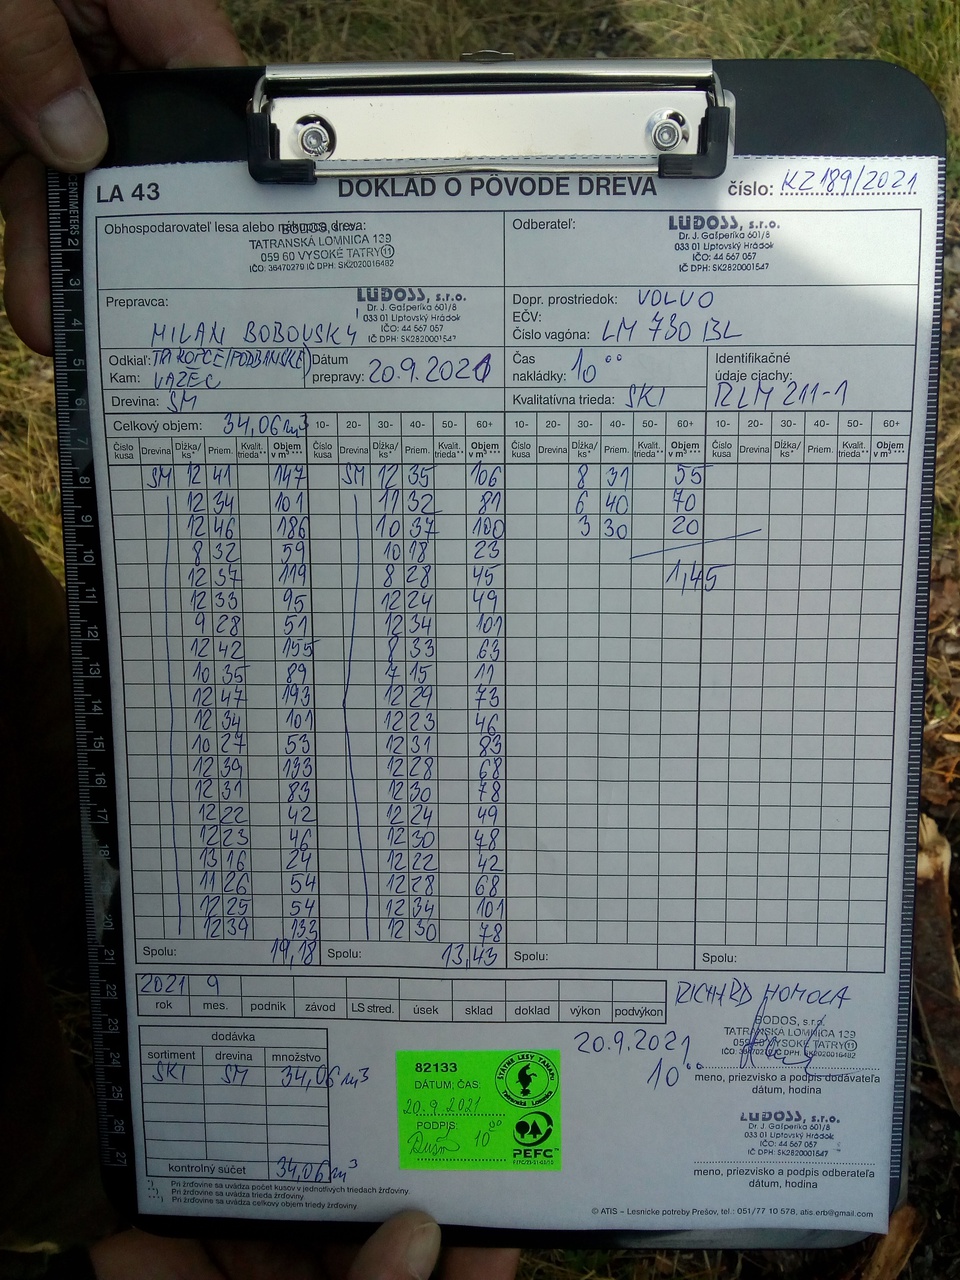 LA 43
DOKLAD O PÔVODE DREVA
číslo: KZ189/2021
Obhospodarovateľ lesa alebo nákupca dreva:
BODOS, s.r.o.
TATRANSKÁ LOMNICA 139
059 60 VYSOKÉ TATRY 11
IČO: 36470279 IČ DPH: SK2020016482
Odberateľ:
LUDOSS, s.r.o.
Dr. J. Gašperíka 601/8
033 01 Liptovský Hrádok
IČO: 44 567 057
IČ DPH: SK2820001547
Prepravca:
LUDOSS, s.r.o.
Dr. J. Gašperíka 601/8
033 01 Liptovský Hrádok
IČO: 44 567 057
IČ DPH: SK2820001547
MILAN BOBOVSKÝ
Dopr. prostriedok: VOLVO
EČV:
Číslo vagóna: LM 730 BL
Odkiaľ:
Kam: VAŽEC
Dátum
prepravy: 20.9.2021
Čas
nakládky: 10⁰⁰
Identifikačné
údaje ciachy:
RLM 211-1
Drevina: SM
Kvalitatívna trieda: SKI
Celkový objem: 34,06 m3 10- 20- 30- 40- 50- 60+ 10- 20- 30- 40- 50- 60+ 10- 20- 30- 40- 50- 60+
Číslo kusa Drevina Dĺžka/ ks* Priem. Kvalit. trieda** Objem v m³ *** Číslo kusa Drevina Dĺžka/ ks* Priem. Kvalit. trieda** Objem v m³ *** Číslo kusa Drevina Dĺžka/ ks* Priem. Kvalit. trieda** Objem v m³ *** Číslo kusa Drevina Dĺžka/ ks* Priem. Kvalit. trieda** Objem v m³ ***
SM 12 41 147 SM 12 35 106 8 31 55
12 34 101 11 32 81 6 40 70
12 46 186 10 37 100 3 30 20
8 32 59 10 18 23
12 37 119 8 28 45 1,45
12 33 95 12 24 49
9 28 51 12 34 101
12 42 155 8 33 63
10 35 89 7 15 11
12 47 193 12 29 73
12 34 101 12 23 46
10 27 53 12 31 83
12 39 133 12 28 68
12 31 83 12 30 78
12 22 42 12 24 49
12 23 46 12 30 78
13 16 24 12 22 42
11 26 54 12 28 68
12 25 54 12 34 101
12 39 133 12 30 78
Spolu: 19,18 Spolu: 13,43 Spolu: Spolu:
2021 9
rok mes. podnik závod LS stred. úsek sklad doklad výkon podvýkon
RICHARD HOMOLA
BODOS, s.r.o.
TATRANSKÁ LOMNICA 139
059 60 VYSOKÉ TATRY 11
IČO: 36470279 IČ DPH: SK2020016482
20.9.2021
10⁰⁰
meno, priezvisko a podpis dodávateľa
dátum, hodina
dodávka
sortiment drevina množstvo
SKI SM 34,06 m3
kontrolný súčet 34,06 m3
82133
DÁTUM; ČAS:
20.9.2021
PODPIS:
10⁰⁰
ŠTÁTNE LESY TANAPU
Tatranská Lomnica
PEFC
LUDOSS, s.r.o.
Dr. J. Gašperíka 601/8
033 01 Liptovský Hrádok
IČO: 44 567 057
IČ DPH: SK2820001547
meno, priezvisko a podpis odberateľa
dátum, hodina
*) Pri žrďovine sa uvádza počet kusov v jednotlivých triedach žrďoviny.
**) Pri žrďovine sa uvádza trieda žrďoviny
***) Pri žrďovine sa uvádza celkový objem triedy žrďoviny
© ATIS – Lesnícke potreby Prešov, tel.: 051/77 10 578, atis.erb@gmail.com
CENTIMETERS 2 3 4 5 6 7 8 9 10 11 12 13 14 15 16 17 18 20 21 22 23 24 25 26 27